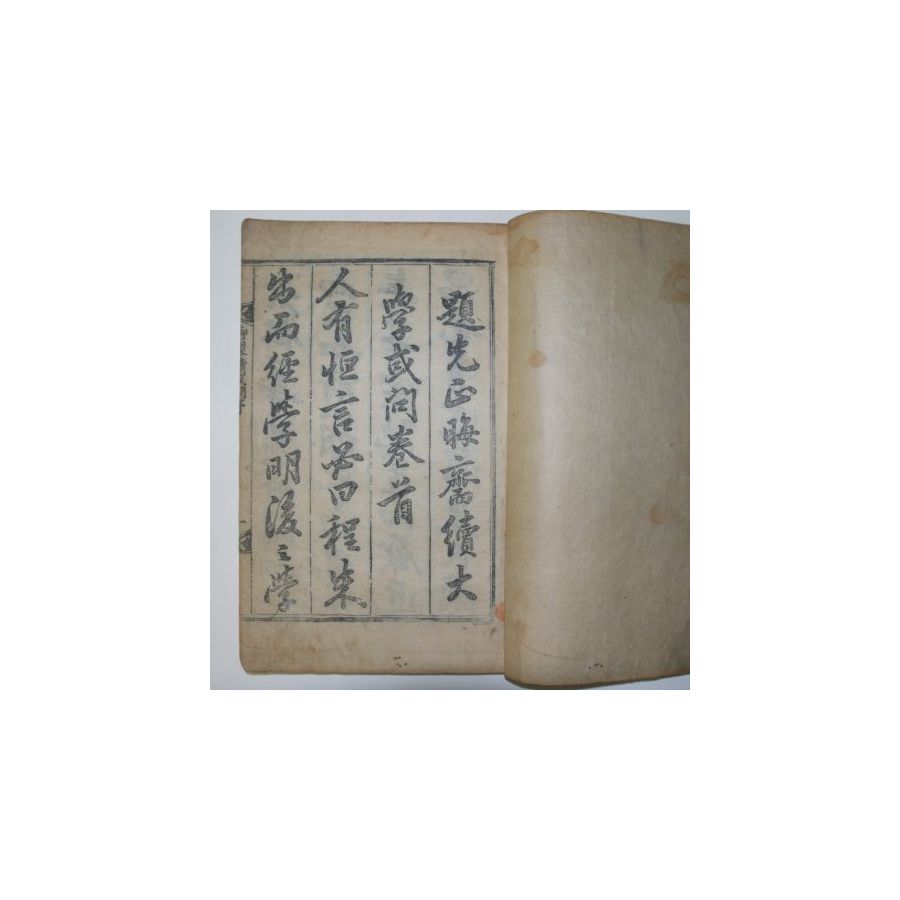 題先正晦齋續大
學或問卷首
人有恒言必曰程朱
朱而經學明後之學